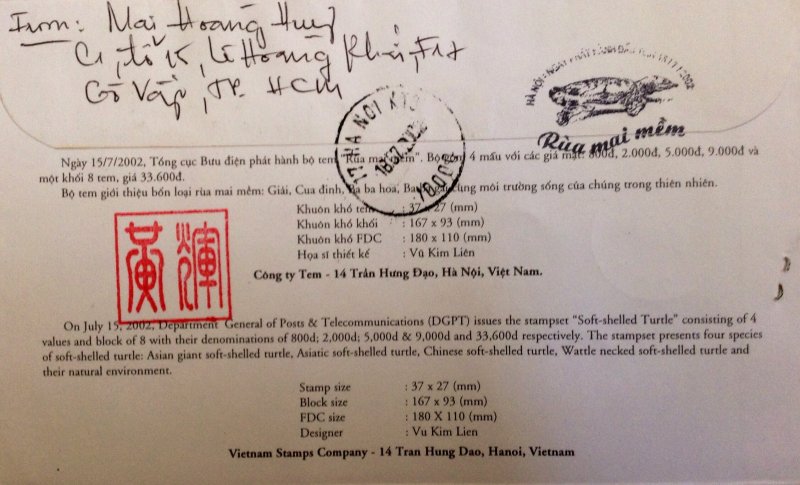 From: Mai Hoàng Huy
C1, tổ 15, Lê Hoàng Phái, F17
Gò Vấp, TP. HCM
HÀ NỘI - NGÀY PHÁT HÀNH ĐẦU TIÊN 15/7/2002
Rùa mai mềm
HA NOI
Ngày 15/7/2002, Tổng cục Bưu điện phát hành bộ tem "Rùa mai mềm". Bộ gồm 4 mẫu với các giá mặt: 800đ, 2.000đ, 5.000đ, 9.000đ và
một khối 8 tem, giá 33.600đ.
Bộ tem giới thiệu bốn loại rùa mai mềm: Giải, Cua đinh, Ba ba hoa, Ba ba gai cùng môi trường sống của chúng trong thiên nhiên.
Khuôn khổ tem : 37 x 27 (mm)
Khuôn khổ khối : 167 x 93 (mm)
Khuôn khổ FDC : 180 x 110 (mm)
Họa sĩ thiết kế : Vũ Kim Liên
Công ty Tem - 14 Trần Hưng Đạo, Hà Nội, Việt Nam.
黃輝
On July 15, 2002, Department General of Posts & Telecommunications (DGPT) issues the stampset "Soft-shelled Turtle" consisting of 4
values and block of 8 with their denominations of 800đ; 2,000đ; 5,000đ & 9,000đ and 33,600đ respectively. The stampset presents four species
of soft-shelled turtle: Asian giant soft-shelled turtle, Asiatic soft-shelled turtle, Chinese soft-shelled turtle, Wattle necked soft-shelled turtle and
their natural environment.
Stamp size : 37 x 27 (mm)
Block size : 167 x 93 (mm)
FDC size : 180 X 110 (mm)
Designer : Vu Kim Lien
Vietnam Stamps Company - 14 Tran Hung Dao, Hanoi, Vietnam